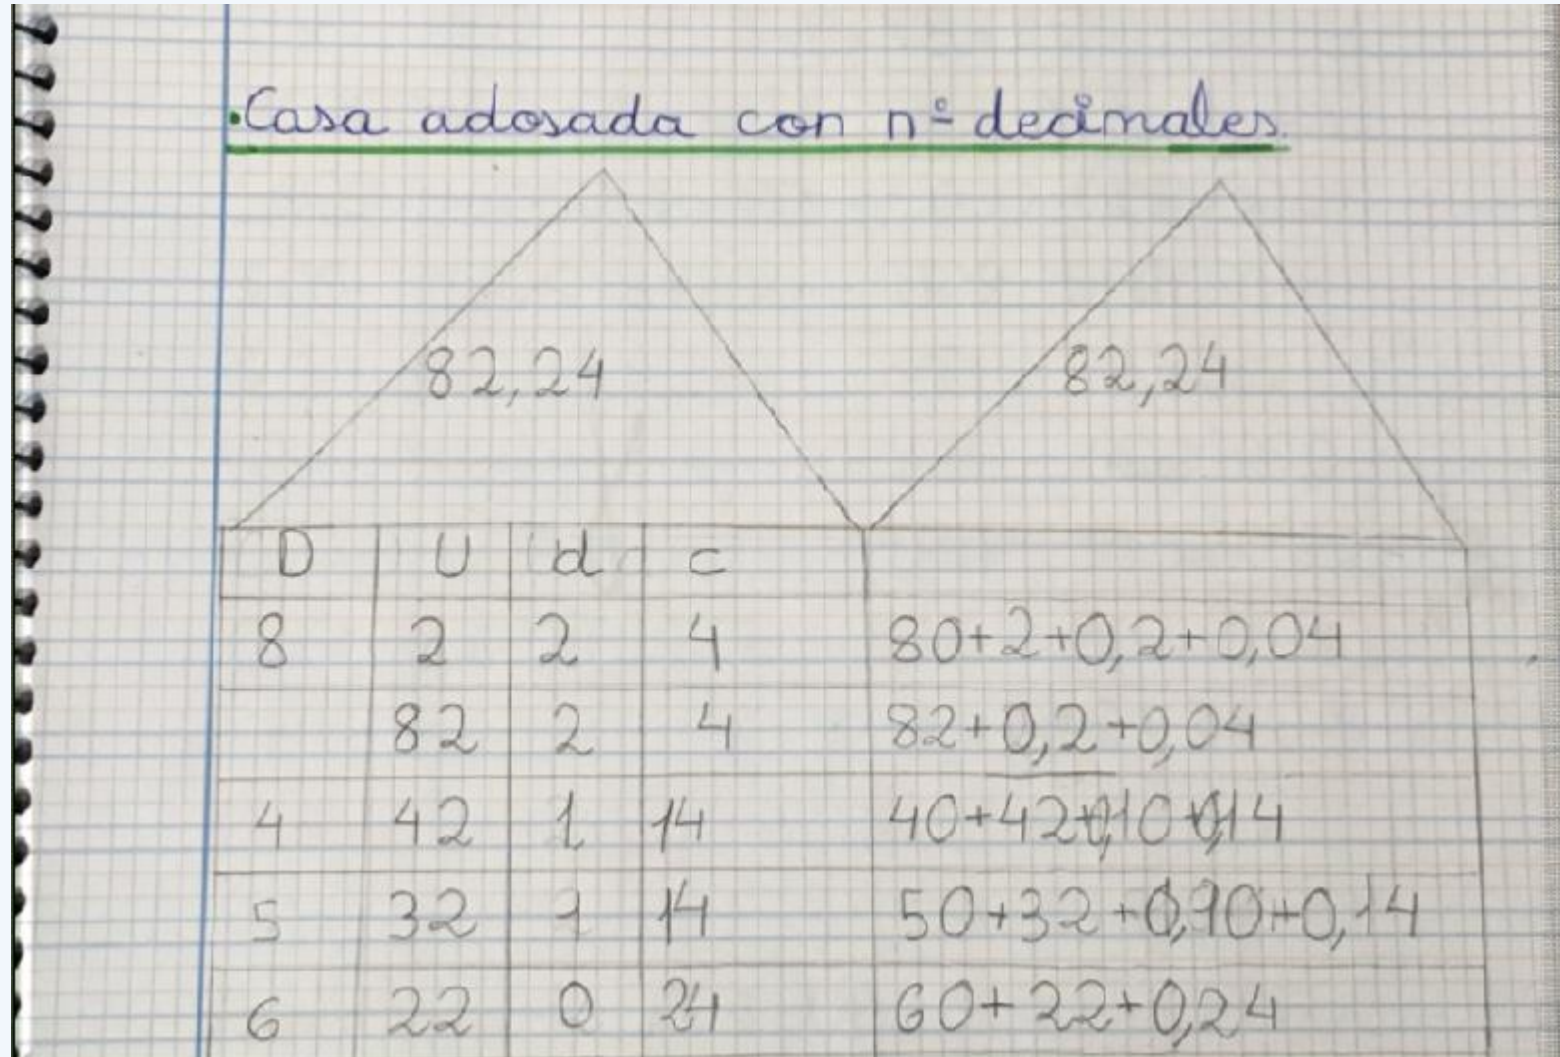 .Casa adosada con nº decimales.
82,24 82,24
D U d c
8 2 2 4 80+2+0,2+0,04
82 2 4 82+0,2+0,04
4 42 1 14 40+42+0,10+0,14
5 32 1 14 50+32+0,10+0,14
6 22 0 24 60+22+0,24